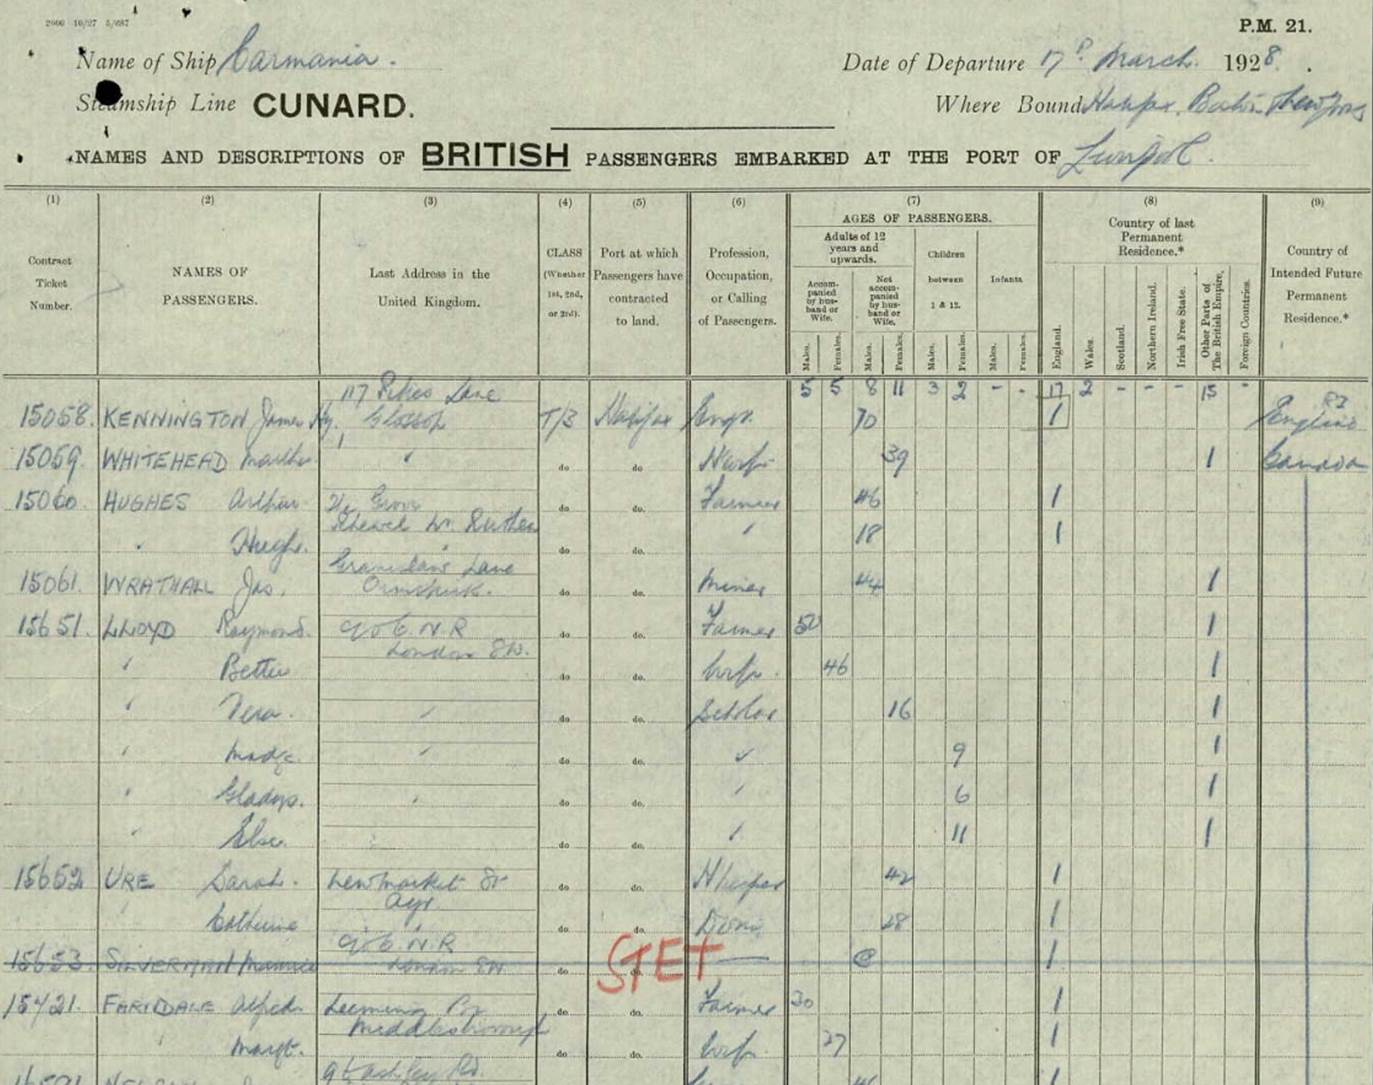 P.M. 21.
Name of Ship Carmania.
Date of Departure 17th March 1928.
Steamship Line CUNARD.
Where Bound Halifax, Boston New York
NAMES AND DESCRIPTIONS OF BRITISH PASSENGERS EMBARKED AT THE PORT OF Liverpool.
(1) (2) (3) (4) (5) (6) (7) (8) (9)
Contract Ticket Number.
NAMES OF PASSENGERS.
Last Address in the United Kingdom.
CLASS (Whether 1st, 2nd, or 3rd).
Port at which Passengers have contracted to land.
Profession, Occupation, or Calling of Passengers.
AGES OF PASSENGERS.
Adults of 12 years and upwards.
Accompanied by husband or Wife.
Not accompanied by husband or Wife.
Children between 1 & 12.
Infants
Males. Females. Males. Females. Males. Females. Males. Females.
Country of last Permanent Residence.*
England. Wales. Scotland. Northern Ireland. Irish Free State. Other Parts of The British Empire. Foreign Countries.
Country of Intended Future Permanent Residence.*
5 5 8 11 3 2 - - 17 2 - - - 15 -
117 Pikes Lane
15058. KENNINGTON James Hy. Glossop T/3 Halifax Engr. 70 1 England
15059. WHITEHEAD Martha " do do Hwife 39 1 Canada
15060. HUGHES Arthur do do. Farmer 46 1
" Hugh. do do. " 18 1
15061. WRATHALL Jas. Lane Ormskirk. do do. Miner 44 1
15651. LLOYD Raymond. C.N.R do do. Farmer 50 1
London SW.
" Bettie do do. Wife. 46 1
" Vera. " do do. Scholar 16 1
" Madge " do do. " 9 1
" Gladys. " do do. " 6 1
" Elsie. do do. " 11 1
15652 URE Sarah. Newmarket St do do. 42 1
Ayr.
" Catherine " do do. Dom. 28 1
15653. SILVERMAN Maurice C.N.R London SW do do. — 1
STET
15421. FARNDALE Alfred. Leeming do do. Farmer 30 1
Middlesborough
" Margt. do do. Wife. 27 1
Ashley Rd.